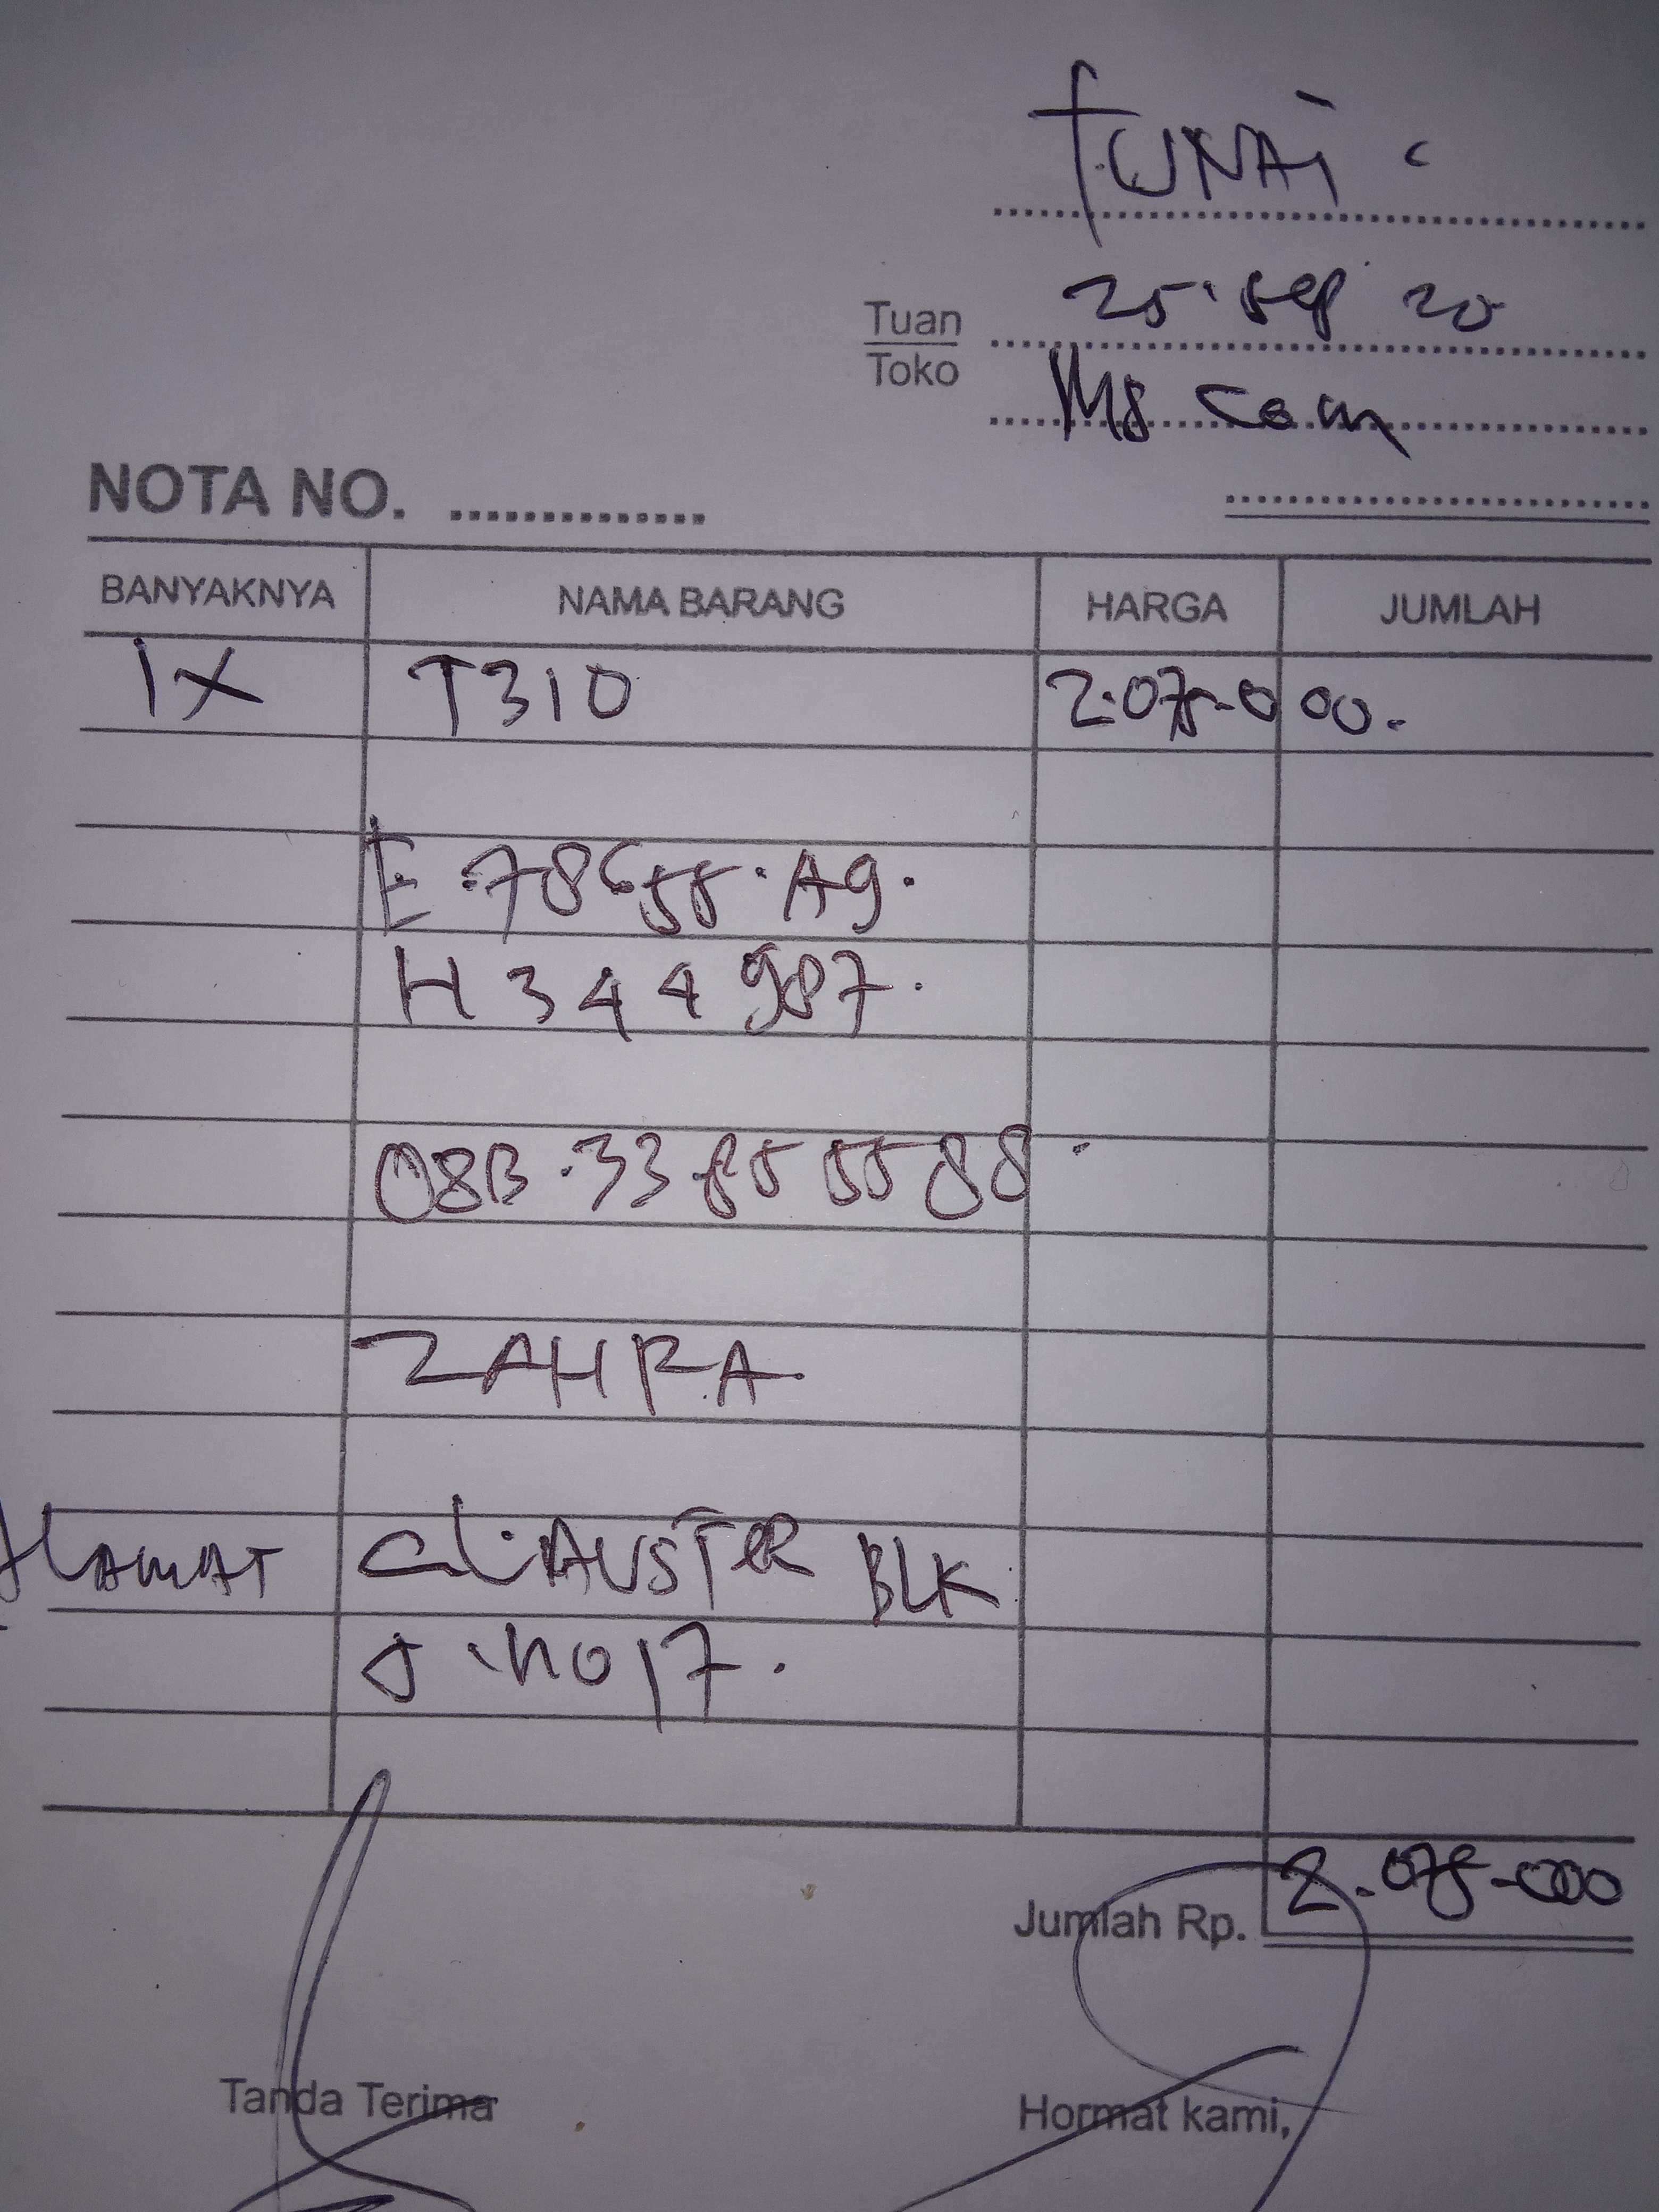 TUNAi
25 Sep 20
Tuan
Toko
MS Com
NOTA NO. ..............
BANYAKNYA NAMA BARANG HARGA JUMLAH
1X T310 2.075.000.
E.78655.A9.
H344987.
ZAHRA
ALAMAT CLAUSTER BLK
J.NO 17.
Jumlah Rp. 2.075.000
Tanda Terima Hormat kami,